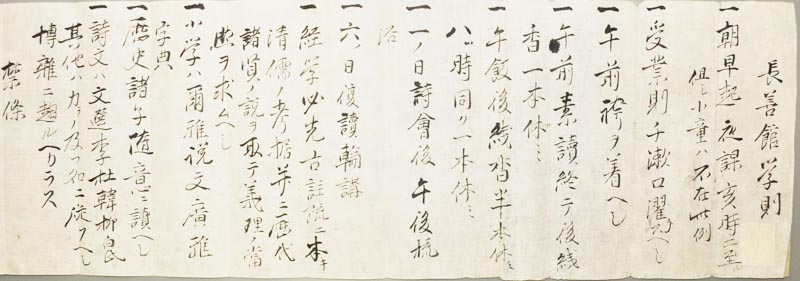 長善館学則
一朝早起夜課亥時ニ至ル
但シ小童ハ不在此例
一受業則チ漱口濯手スヘし
一午前袴ヲ着へし
一午前素読終テ後線
香一本休ミ
一午飯後線香半本休ミ
八ツ時同ク一本休ミ
一一ノ日詩會後午後梳
浴
一六ノ日復讀輪講
一経学必先古註疏ニ本キ
清儒ノ考据并ニ歴代
諸賢ノ説ヲ取テ義理當
然ヲ求ムヘし
一小学ハ爾雅説文廣雅
字典
一歴史諸子随意ニ讀へし
一詩文ハ文選李杜韓柳
其他ハ力ノ及フ処ニ従フへし
博雑ニ趨ルヘカラス
禁條